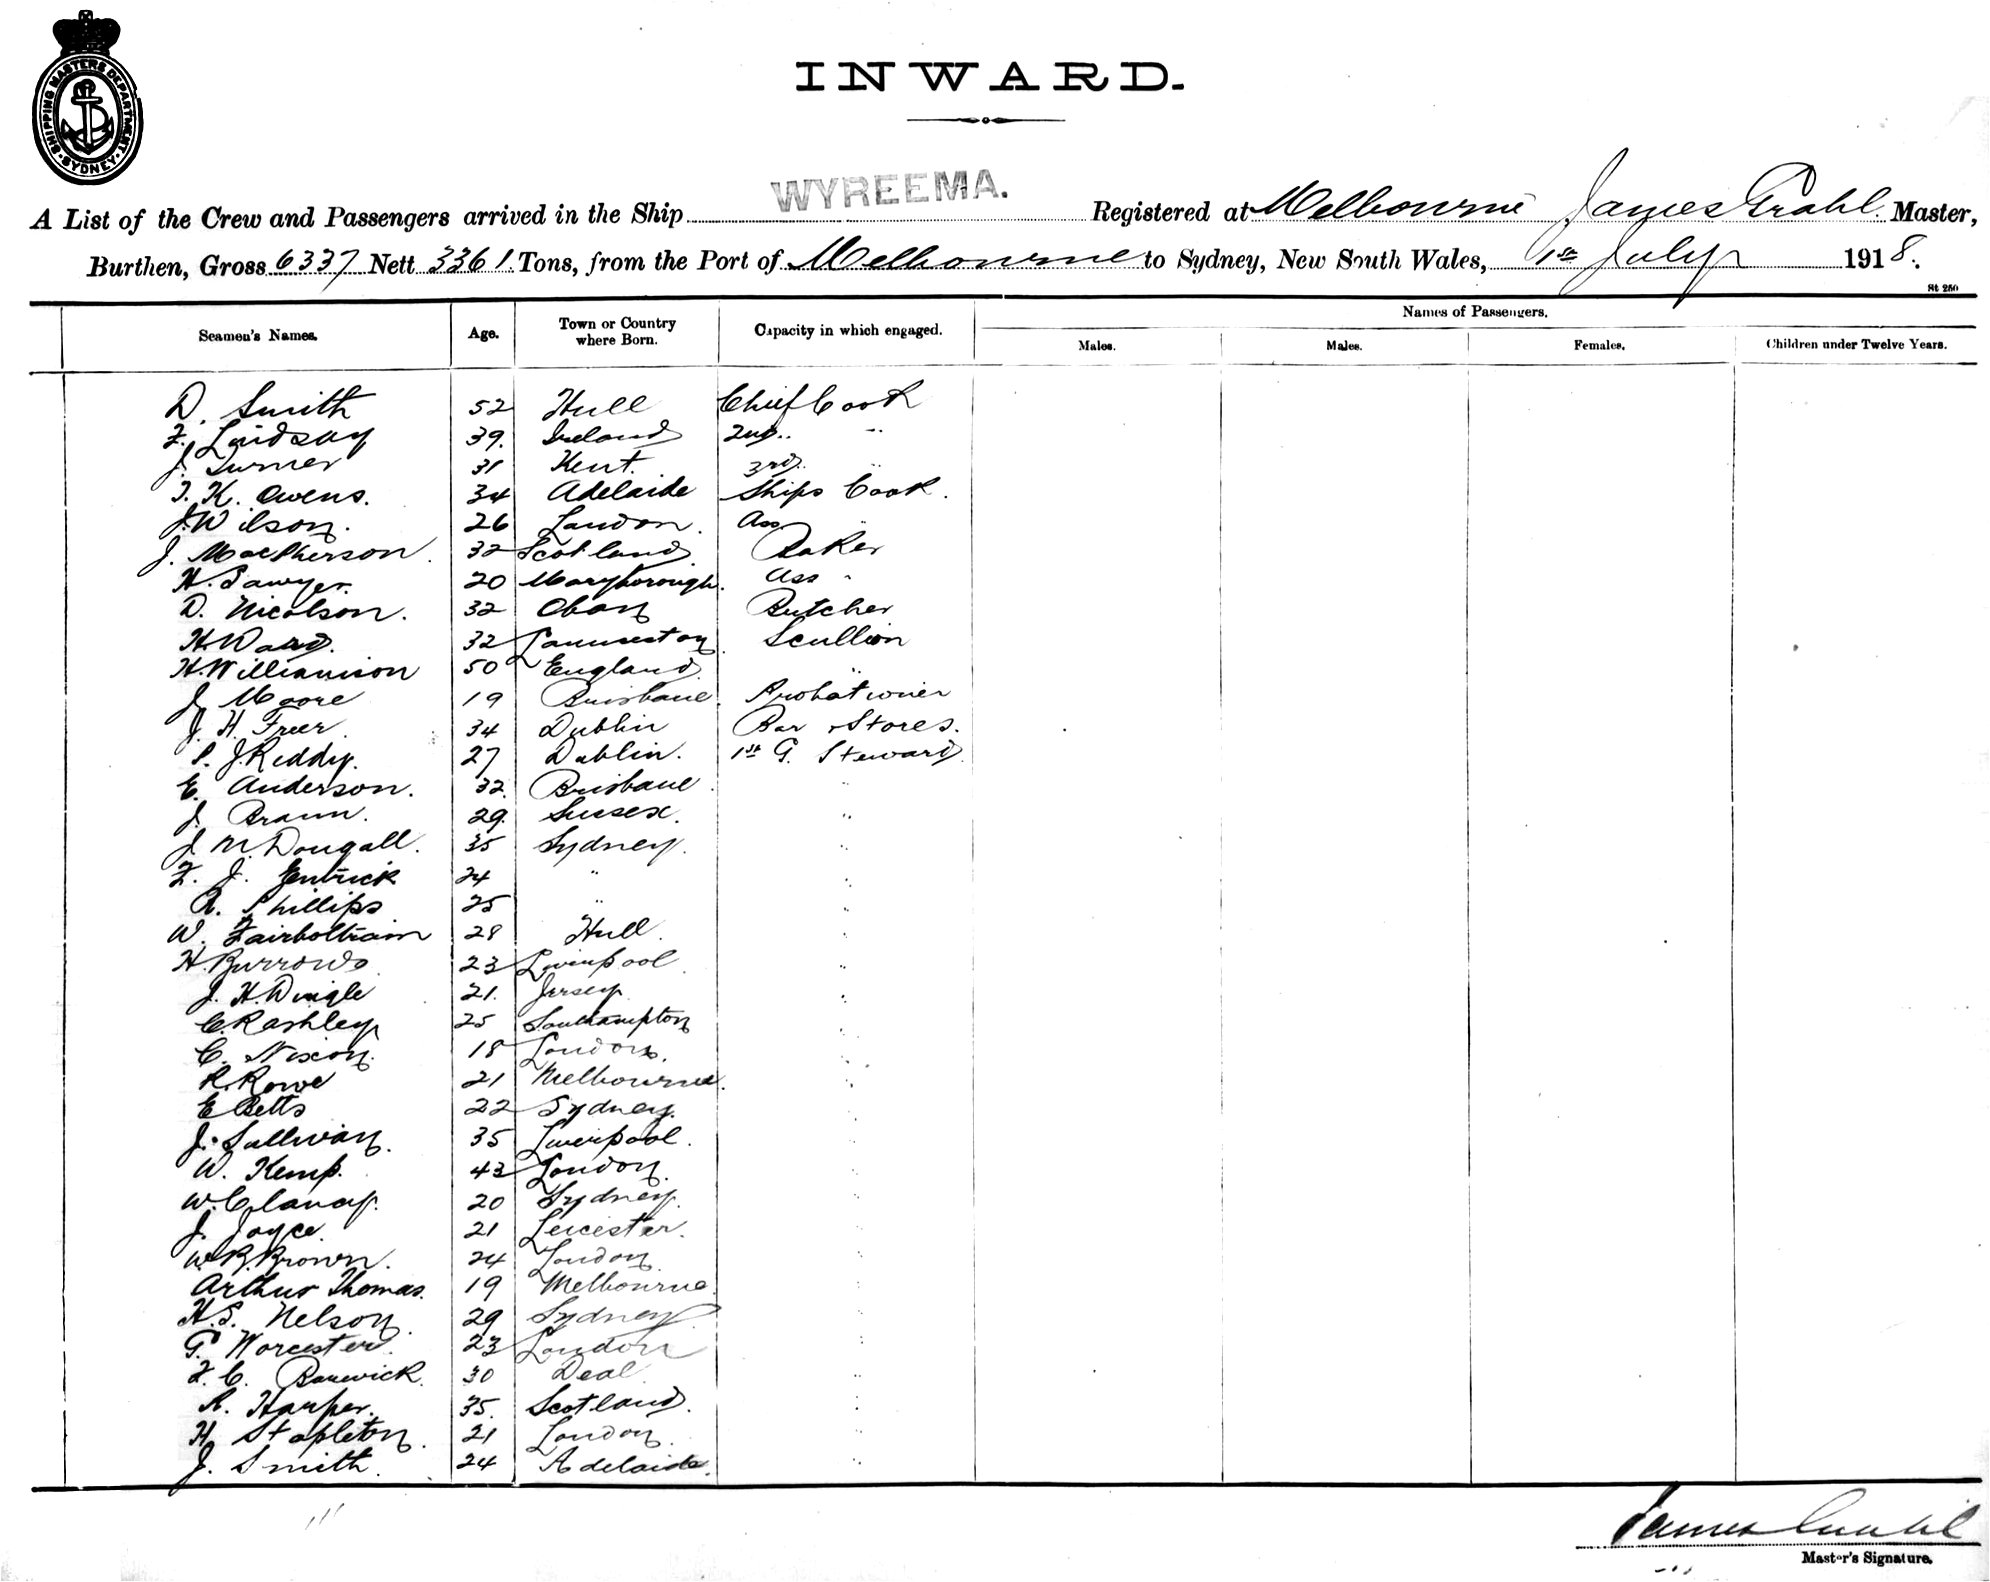 SHIPPING MASTERS DEPARTMENT
· SYDNEY ·
INWARD.
A List of the Crew and Passengers arrived in the Ship WYREEMA. Registered at Melbourne James Grahl. Master,
Burthen, Gross 6337 Nett 3361 Tons, from the Port of Melbourne to Sydney, New South Wales, 1st July 1918.
St 250
Seamen's Names. Age. Town or Country where Born. Capacity in which engaged. Names of Passengers.
Males. Males. Females. Children under Twelve Years.
D. Smith 52 Hull Chief Cook
F. Lindsay 39. Ireland 2nd .. ..
J. Turner 31 Kent. 3rd. ..
T. K. Owens. 34 Adelaide Ships Cook.
J. Wilson. 26 London. Ass ..
J. MacPherson. 32 Scotland Baker
H. Sawyer. 20 Maryborough. Ass "
D. Nicolson. 32 Oban Butcher
H. Ward. 32 Launceston Scullion
H. Williamson 50 England ..
J. Moore 19 Brisbane. Probationer
J. H. Freer. 34 Dublin Bar & Stores.
P. J. Reddy. 27 Dublin. 1st G. Steward
E. Anderson. 32. Brisbane. ..
J. Braun. 29. Sussex. ..
J. McDougall. 35 Sydney. ..
F. J. Entrick 24 " ..
R. Phillips 25 " ..
W. 28 Hull. ..
H. Burrows 23 Liverpool ..
J. H. Dingle 21. Jersey ..
C. Rashley 25 Southampton ..
C. Nixon. 18 London. ..
R. Rowe 21 Melbourne. ..
E Betts 22 Sydney. ..
J. Sullivan. 35 Liverpool. ..
W. Kemp. 43 London. ..
W. Clancy. 20 Sydney. ..
J. Joyce. 21 Leicester. ..
W. B. Brown. 24 London. ..
Arthur Thomas. 19 Melbourne. ..
H. S. Nelson. 29 Sydney ..
G. Worcester. 23 London ..
F. C. Barwick. 30 Deal ..
R. Harper. 35. Scotland. ..
H. Stapleton. 21 London. ..
J. Smith. 24 Adelaide. ..
James Grahl
Master's Signature.